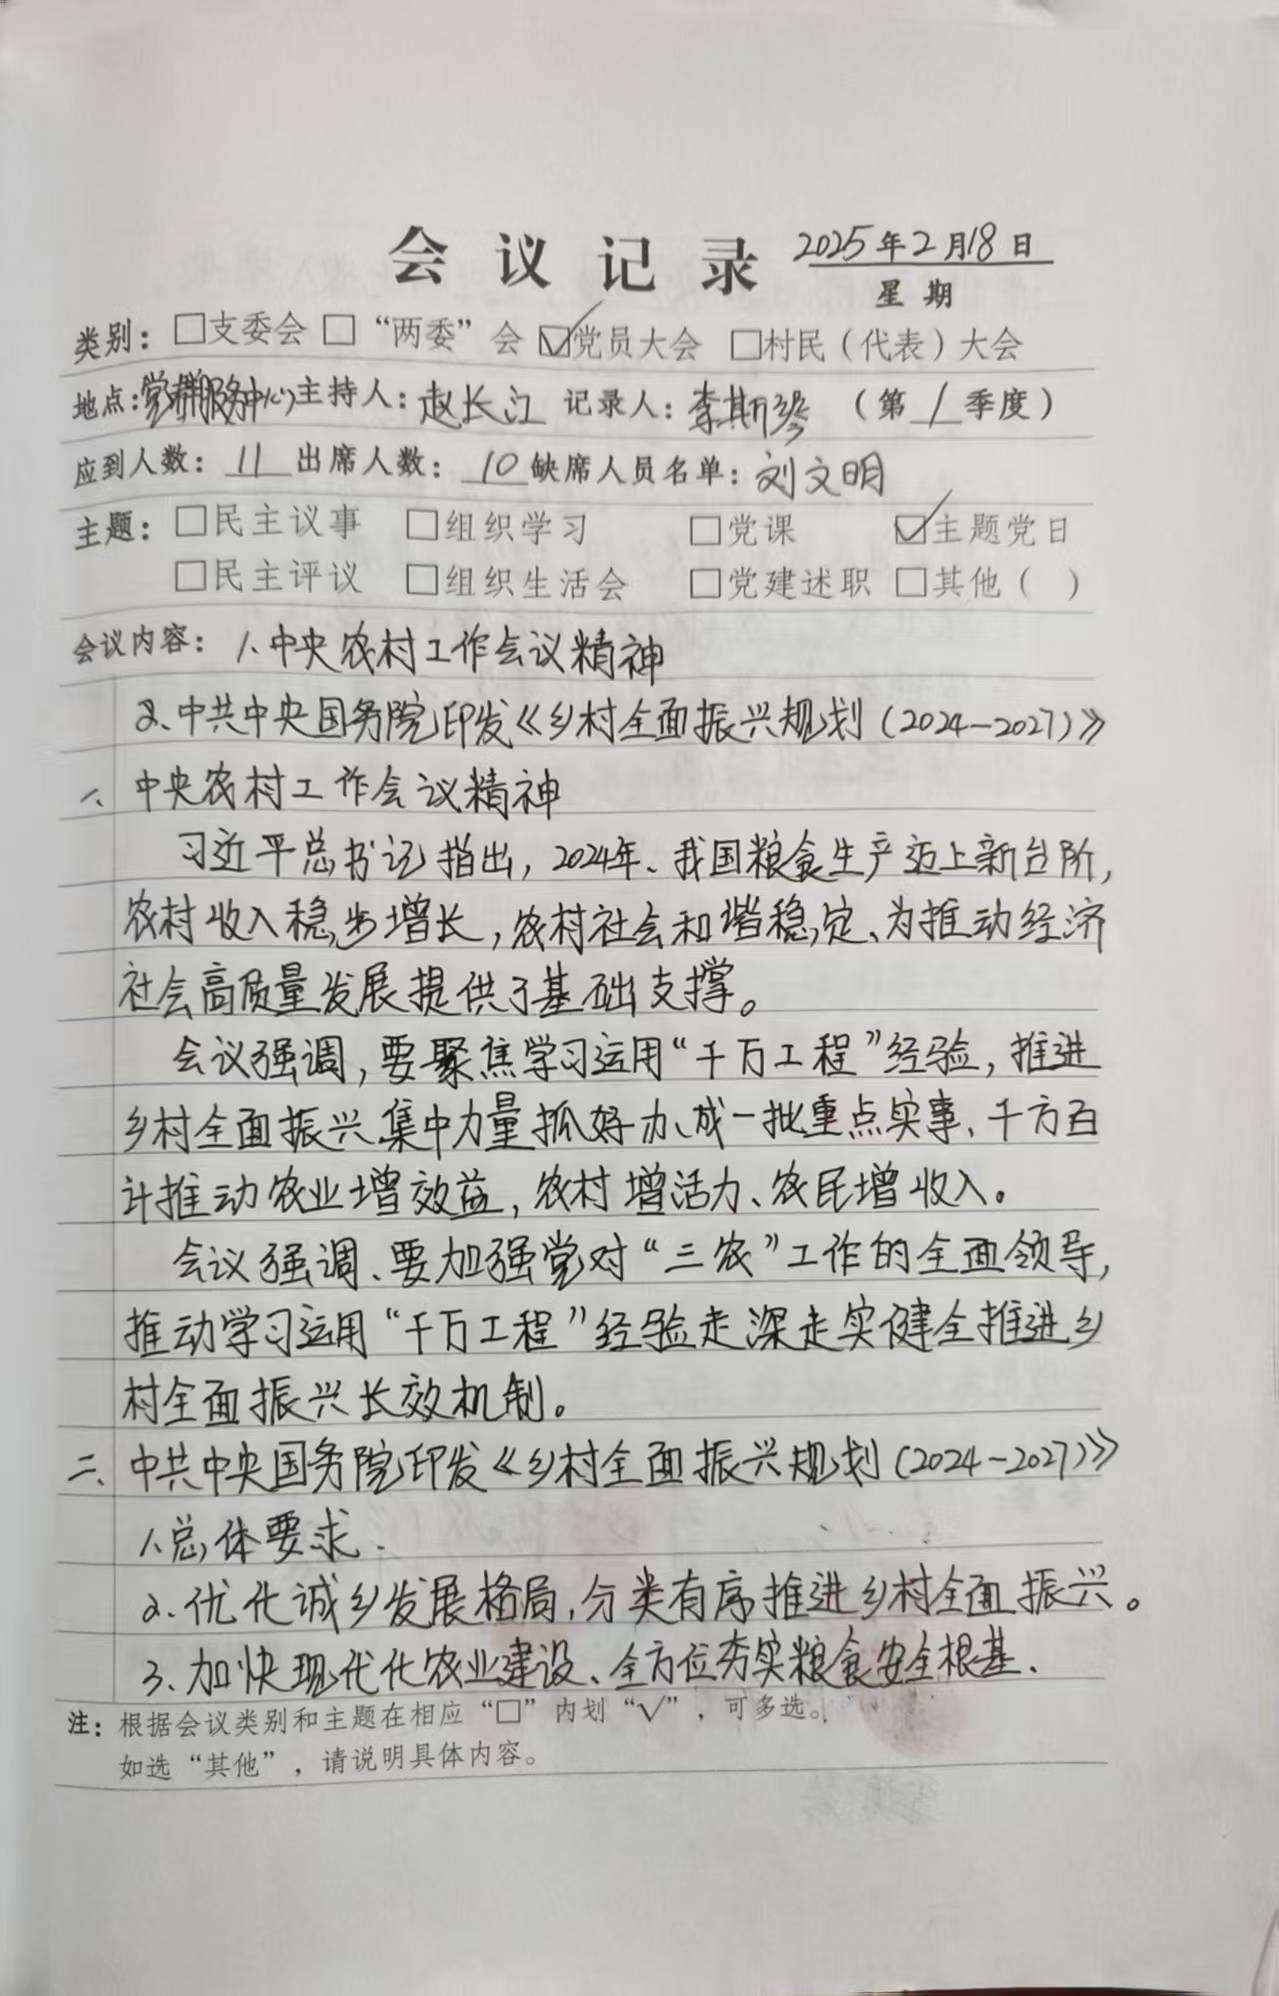 会议记录 2025年2月18日
星期
类别：□支委会 □“两委”会 ☑党员大会 □村民（代表）大会
地点：党群服务中心 主持人：赵长江 记录人：李斯 （第1季度）
应到人数：11 出席人数：10 缺席人员名单：刘文明
主题：□民主议事 □组织学习 □党课 ☑主题党日
□民主评议 □组织生活会 □党建述职 □其他（ ）
会议内容：1.中央农村工作会议精神
2.中共中央国务院印发《乡村全面振兴规划（2024—2027）》
一、中央农村工作会议精神
习近平总书记指出，2024年、我国粮食生产迈上新台阶，
农村收入稳步增长，农村社会和谐稳定、为推动经济
社会高质量发展提供了基础支撑。
会议强调，要聚焦学习运用“千万工程”经验，推进
乡村全面振兴.集中力量抓好办成一批重点实事、千方百
计推动农业增效益，农村增活力、农民增收入。
会议强调、要加强党对“三农”工作的全面领导，
推动学习运用“千万工程”经验走深走实健全推进乡
村全面振兴长效机制。
二、中共中央国务院印发《乡村全面振兴规划（2024—2027）》
1.总体要求.
2.优化诚乡发展格局，分类有序推进乡村全面振兴。
3.加快现代化农业建设、全方位夯实粮食安全根基.
注：根据会议类别和主题在相应“□”内划“√”，可多选。
如选“其他”，请说明具体内容。